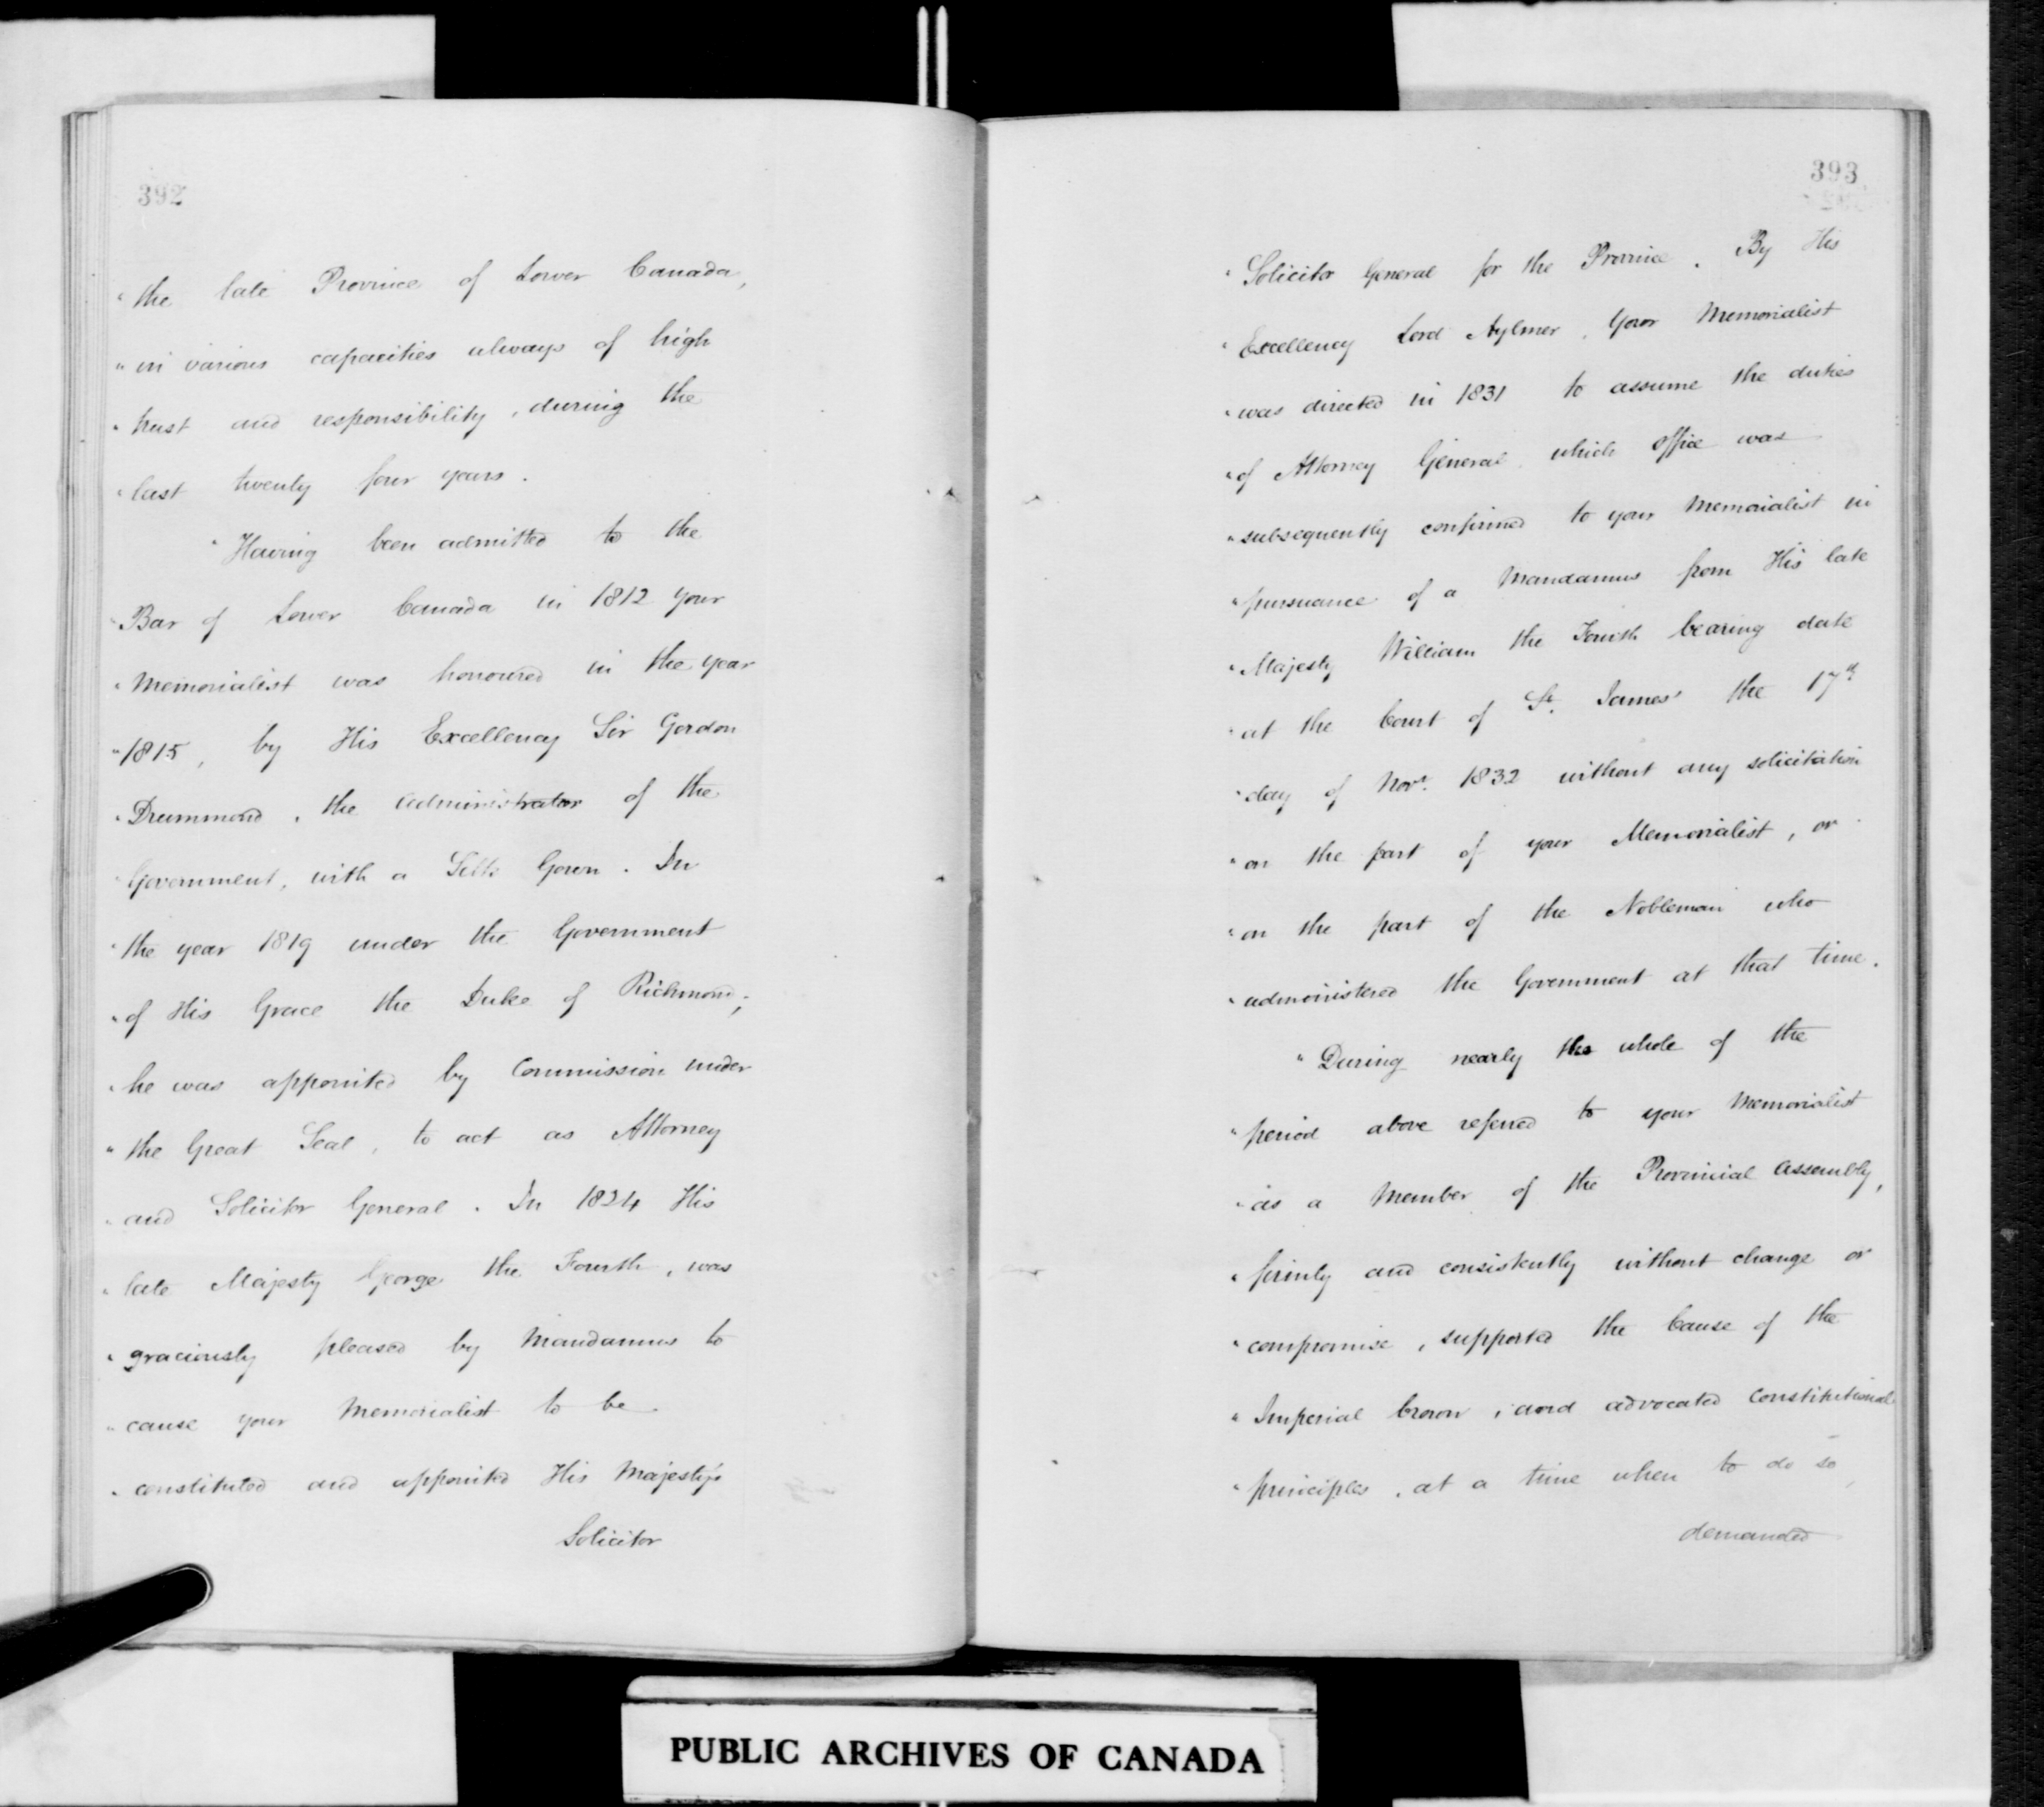 392
"the late Province of Lower Canada,
"in various capacities always of high
"trust and responsibility, during the
"last twenty four years.
"Having been admitted to the
"Bar of Lower Canada in 1812 your
"Memorialist was honoured in the year
"1815, by His Excellency Sir Gordon
"Drummond, the administrator of the
"Government, with a Silk Gown. In
"the year 1819 under the Government
"of His Grace the Duke of Richmond,
"he was appointed by Commission under
"the Great Seal, to act as Attorney
"and Solicitor General. In 1824 His
"late Majesty George the Fourth, was
"graciously pleased by Mandamus to
"cause your Memorialist to be
"constituted and appointed His Majesty's
Solicitor
393
"Solicitor General for the Province. By His
"Excellency Lord Aylmer, Your Memorialist
"was directed in 1831 to assume the duties
"of Attorney General which office was
"subsequently confirmed to your Memorialist in
"pursuance of a Mandamus from His late
"Majesty William the Fourth bearing date
"at the Court of St. James' the 17th
"day of Novr. 1832 without any solicitation
"on the part of your Memorialist, or
"on the part of the Nobleman who
"administered the Government at that time.
"During nearly the whole of the
"period above referred to your Memorialist
"as a Member of the Provincial Assembly,
"firmly and consistently without change or
"compromise, supported the Cause of the
"Imperial Crown, and advocated Constitutional
"principles, at a time when to do so,
demanded
PUBLIC ARCHIVES OF CANADA